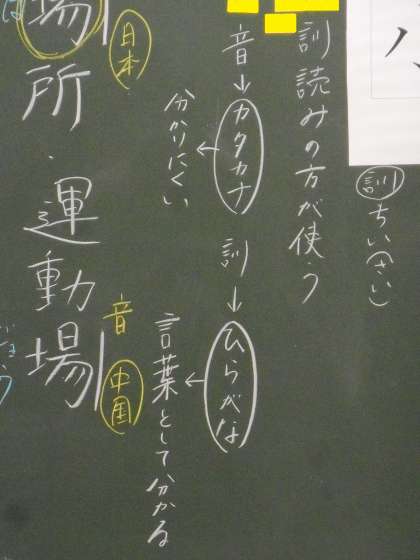 訓 ちい(さい)
訓読みの方が使う
音→カタカナ
訓→ひらがな
分かりにくい
言葉として分かる
日本
音 中国
場所・運動場